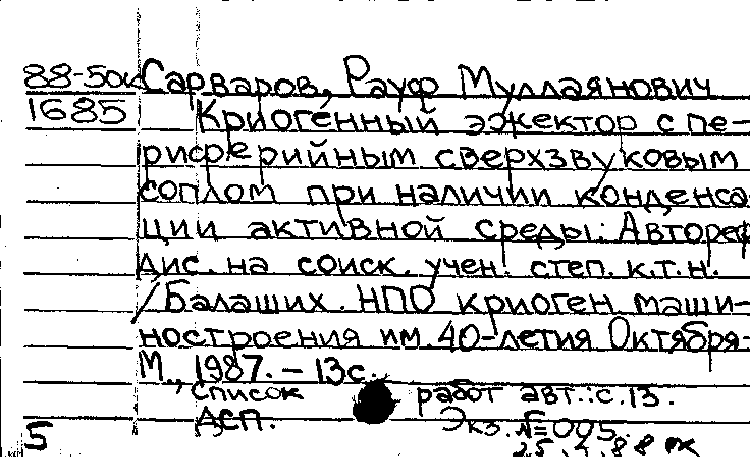 88-50к Сарваров, Рауф Муллаянович
1685 Криогенный эжектор с пе-
риферийным сверхзвуковым
соплом при наличии конденса
ции активной среды: Автореф
дис. на соиск. учен. степ. к.т.н.
/Балаших. НПО криоген маши-
ностроения им. 40-летия Октября-
М., 1987. - 13с.
Список работ авт.: с.13.
ДСП. Экз. №005.
5